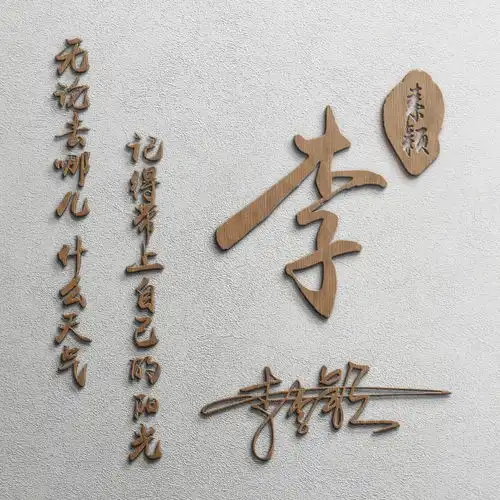 无论去哪儿 什么天气
记得带上自己的阳光
李